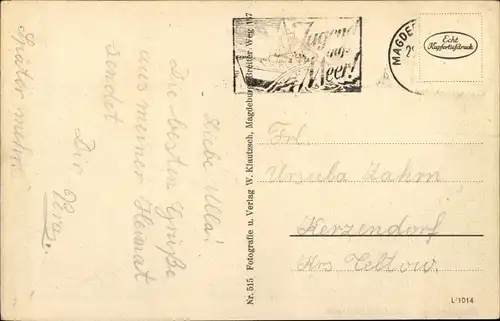 Liebe Ulla!
Die besten Grüße
aus meiner Heimat
sendet
Dir
Später mehr.
Nr. 515 Fotografie u. Verlag W. Klautzsch, Magdeburg, Breiter Weg 157
Jugend
ans
Meer!
MAGDE
Echt
Kupfertiefdruck
Frl.
Ursula Zahm
Kerzendorf
Krs Teltow.
L 1014